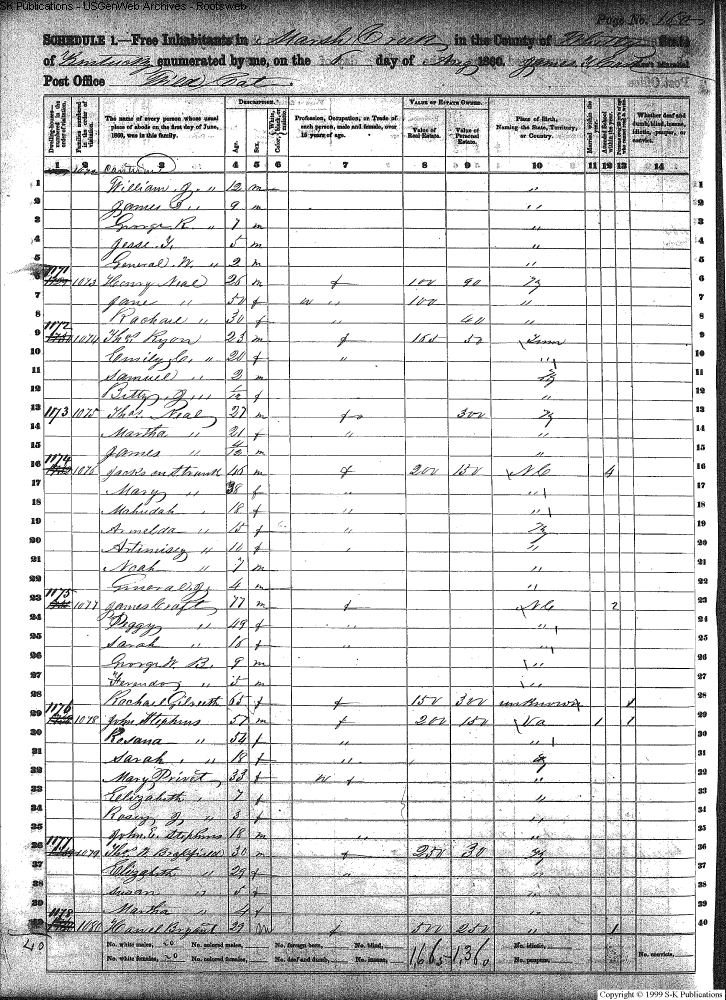 S-K Publications - USGenWeb Archives - Rootsweb
Page No. 160
SCHEDULE 1.—Free Inhabitants in Marsh Creek in the County of Whitley State
of Kentucky enumerated by me, on the day of Aug 1860.
Post Office Wild Cat
DESCRIPTION. VALUE OF ESTATE OWNED.
Dwelling-houses—numbered in the order of visitation. Families numbered in the order of visitation. The name of every person whose usual place of abode on the first day of June, 1860, was in this family. Age. Sex. Color Profession, Occupation, or Trade of each person, male and female, over 15 years of age. Value of Real Estate. Value of Personal Estate. Place of Birth, Naming the State, Territory, or Country. Married within the year. Attended School within the year. Whether deaf and dumb, blind, insane, idiotic, pauper, or convict.
1 2 3 4 5 6 7 8 9 10 11 12 13 14
1 William J. " 12 m "
2 James " 9 m "
3 George R. " 7 m "
4 Jesse 5 m "
5 General W. " 2 m "
6 1171 1073 Henry Neal 26 m f 100 90 Ky
7 Jane " 50 f " 100 "
8 Rachael " 30 f " 40 "
9 1172 1074 Thos Ryon 23 m f 165 50 Tenn
10 Emily C. " 20 f " "
11 Samuel " 2 m Ky
12 Betty J " 1/12 f "
13 1173 1075 Thos. Neal 27 m 300 Ky
14 Martha " 21 f " "
15 James " m "
16 1174 1076 Jackson Strunk 46 m f 200 150 NC 4
17 Mary " 38 f " "
18 Mahudah " 18 f " "
19 Armelda " 15 f " Ky
20 Artimisey " 10 f "
21 Noah " 7 m "
22 Gineral J. 4 m "
23 1175 1077 James Craft 77 m f NC 2
24 Peggy " 49 f "
25 Sarah " 16 f " "
26 George W. B. 9 m "
27 " 5 m "
28 Rachael Gilreath 65 f f 150 300 unknown 1
29 1176 1078 John Stephins 57 m f 200 150 Va 1 1
30 Rosana " 54 f " "
31 Sarah " 18 f " Ky
32 Mary Privet 33 f "
33 Elizabeth " 7 f "
34 Rosey J " 3 f "
35 John E. Stephins 18 m " "
36 1177 1079 Thos N 30 m f 250 30 Ky
37 Elizabeth " 29 f " "
38 Susan " 5 f "
39 Martha " 4 f "
40 1178 1080 Bryant 29 m f 500 250 " 1
40 No. white males, 20 No. colored males, No. foreign born, No. blind, 1,665 1,360 No. idiotic,
No. white females, 20 No. colored females, No. deaf and dumb, No. insane, No. paupers, No. convicts,
Copyright © 1999 S-K Publications